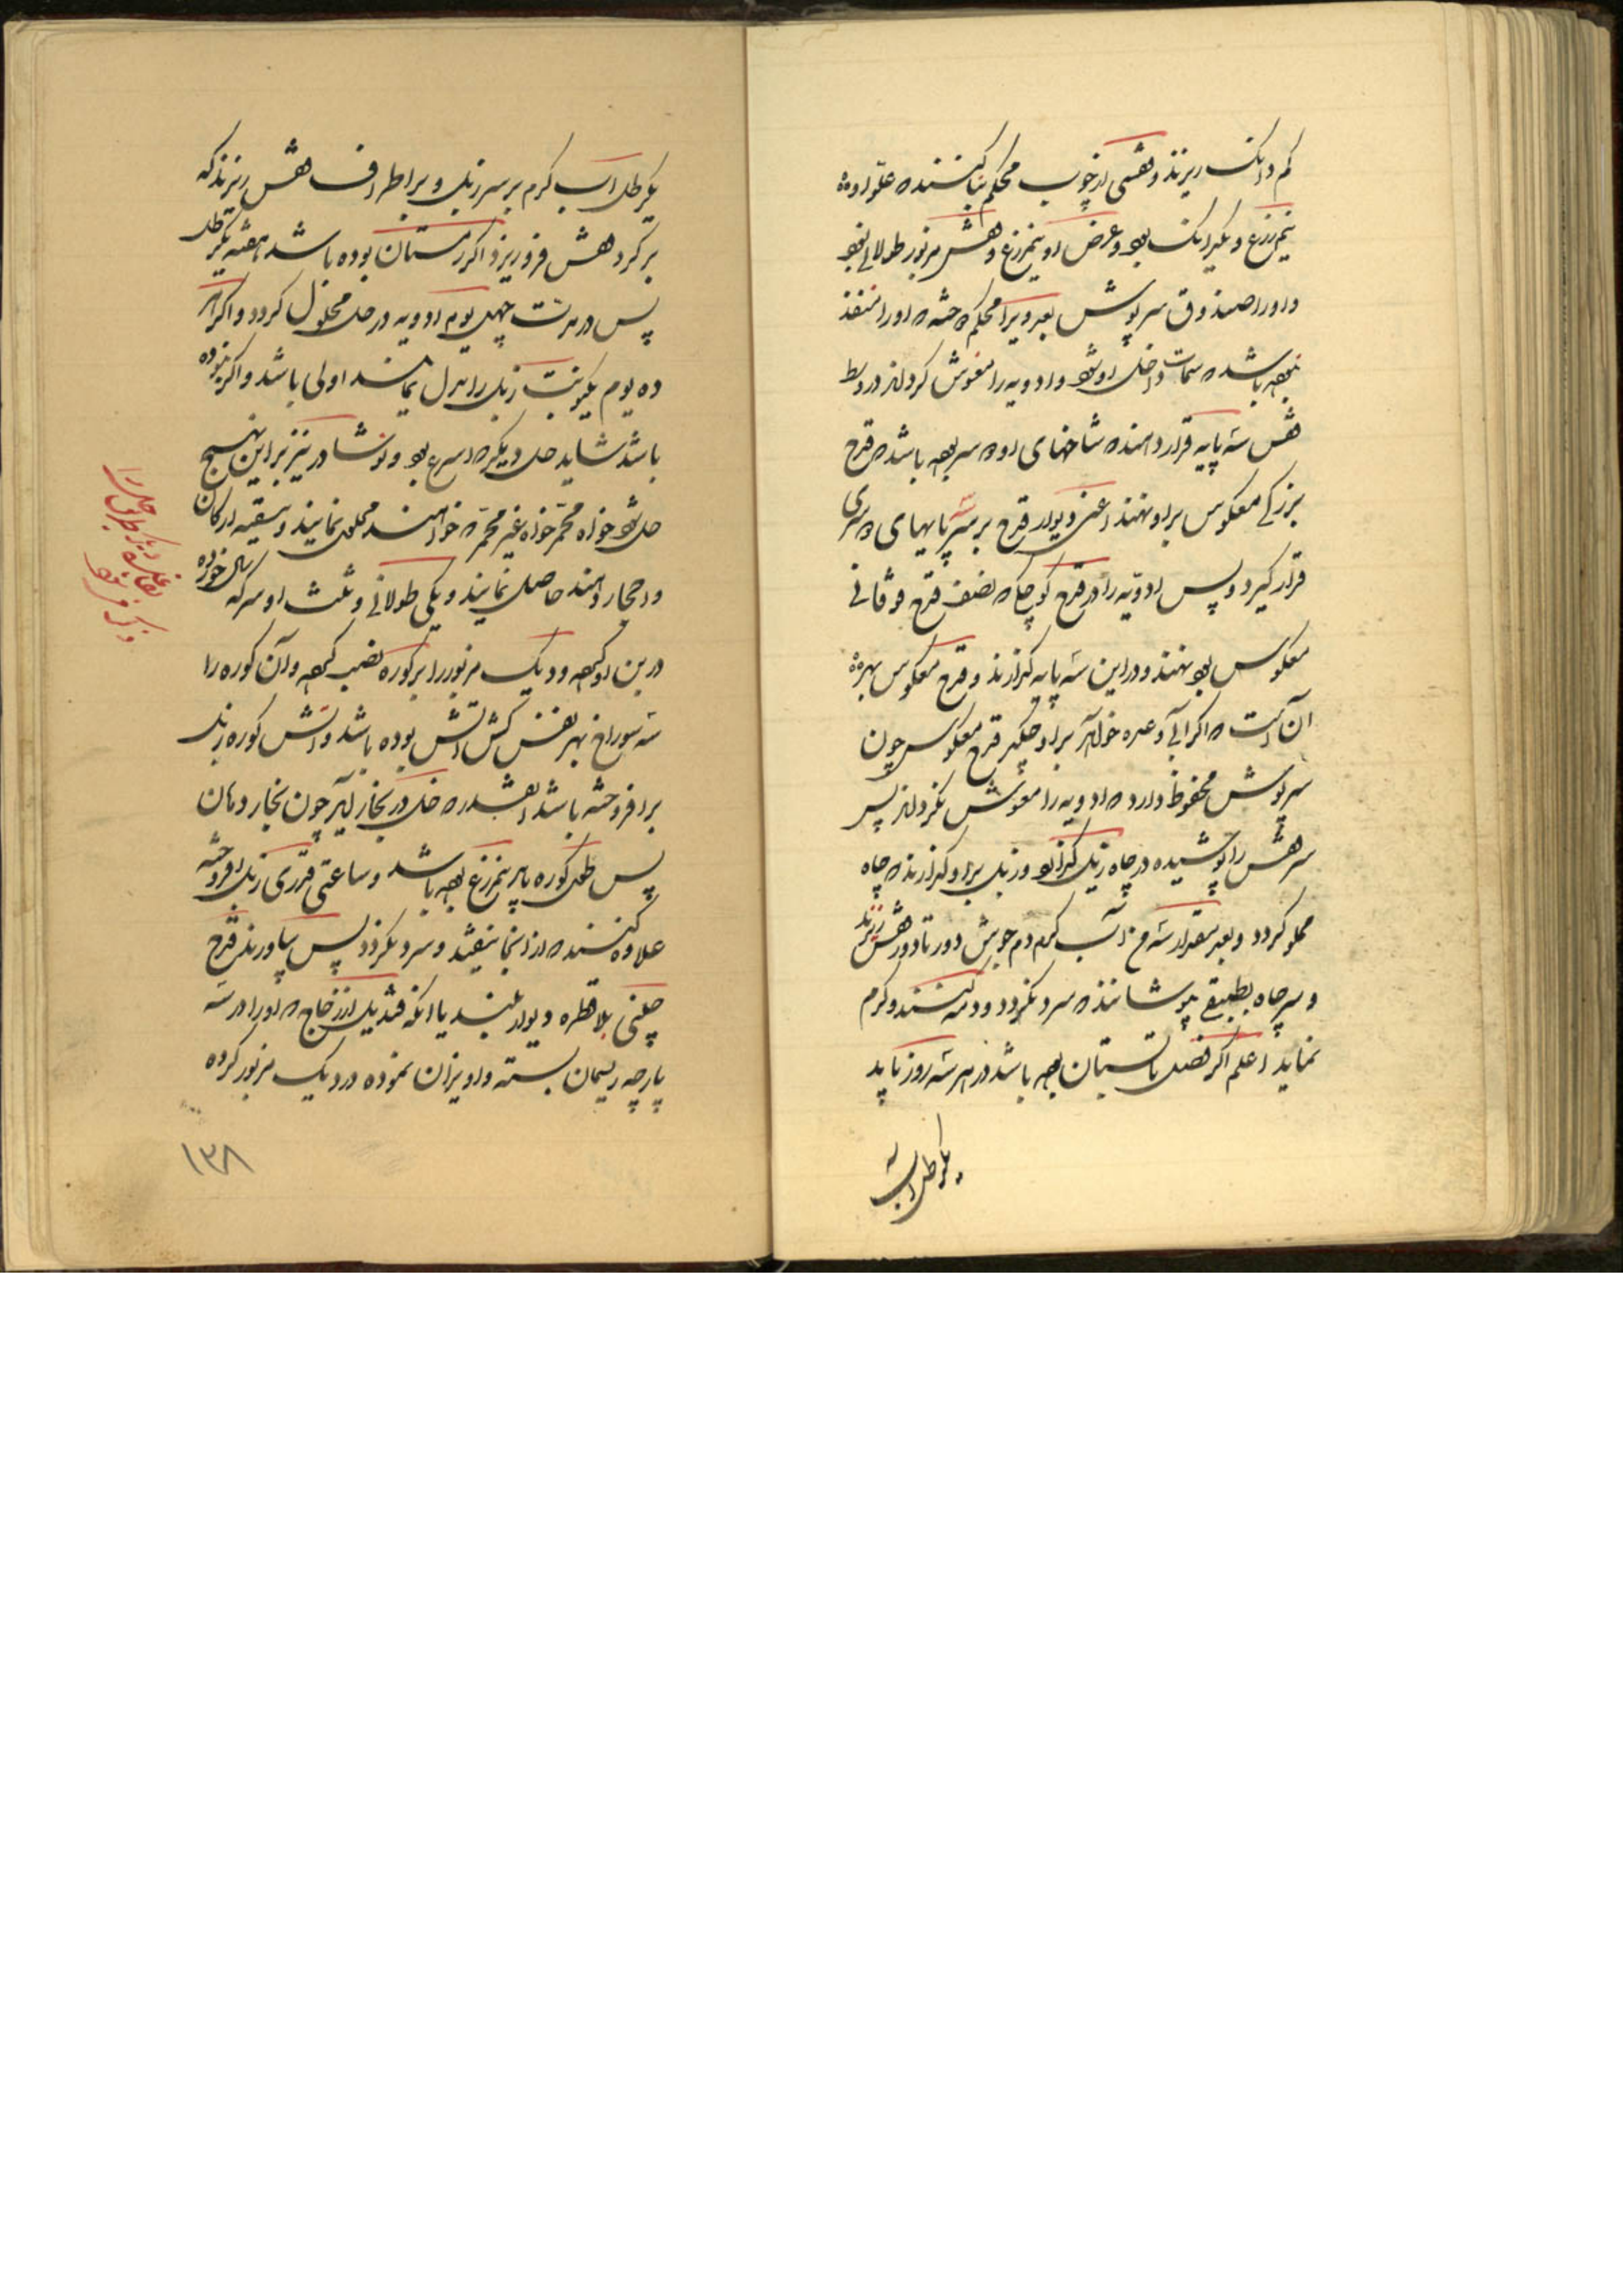 کم دانک ریزند و هشی از خوب محکم بنا کنند که علو او
نیم زرع و یکدانک بود و عرض او نیم زرع و هش مزبور طولانی بود
و او را صندوق سرپوش بود و یرا محکم که حشه که او را منفذ
نبوده باشد که سمات داخل او شود و ادویه را مغوش کرداند در وسط
هش سه پایه قرار دهند که شاخهای او سر بوده باشد که قرع
بزرکی معکوس بر او نهند اعنی دیوار قرع بر سر پایهای
قرار کیرد و پس ادویه را در قرع کوچک که نصف قرع فوقانی
معکوس بود نهند و در این سه پایه کذارند و قرع معکوس بهره
آن است که اکر آبی و غیره خواهد بر او چکد قرع معکوس چون
سرپوش محفوظ دارد که ادویه را مغوش نکرداند پس
سر هش را پوشیده در چاه زبل کذارند و زبل بر او کذارند که چاه
مملو کردد و بعد بمقدار سه من آب کرم دم جوش دور تا دور هش ریزند
و سر چاه بطبقی پوشانند که سرد نکردد و دمه کنند و کرم
نماید اعلم اکر فصل تابستان بوده باشد در هر سه روز باید
یکرطل آب
یکرطل آب کرم بر سر زبل و بر اطراف هش ریزند که
بر کرد هش فرو ریزد اکر زمستان بوده باشد هفته یکرطل
پس در مدت چهل یوم ادویه در حل محلول کردد و اکر هر
ده یوم یکنوبت زبل را بدل نمایند اولی باشد و اکر نبوده
باشد شاید حل دیکر که اسرع بود و نوشادر نیز بر این نهج
حل شود خواه محمر خواه غیر محمر که خواهند محلول نمایند و تسقیه ارکان
و احجار دهند حاصل نمایند دیکی طولانی و ثلث او سرکه سال خورده
در بن او کنند و دیک مزبور را بر کوره نصب کنند و آن کوره را
سه سوراخ بهر نفس کش آتش بوده باشد و آتش کوره زبل
برافروخته باشد آنقدر که خل در بخار آید چون بخار دهان
پس طول کوره باید نیم زرع بوده باشد و ساعتی قدری زبل افروخته
علاوه کنند که از آنجا نیفتد و سرد نکردد پس بیاورند قرع
چینی بلا قطره دیوار بلند یا آنکه قندیل از زجاج که او را در سه
پارچه ریسمان بسته و آویزان نموده در دیک مزبور کرده
۱۳۸